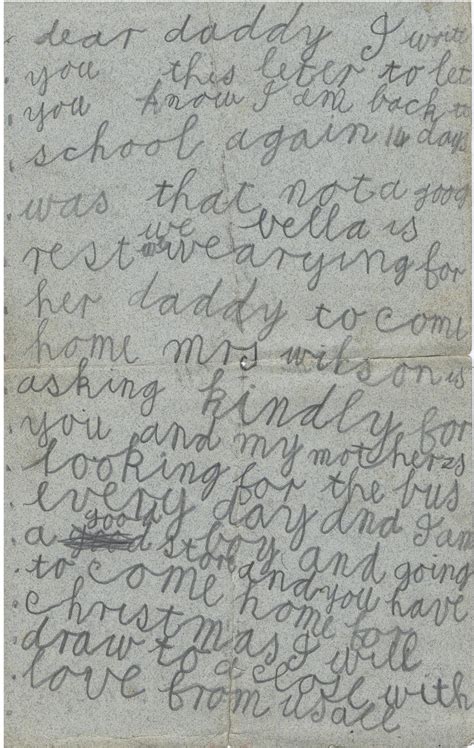 dear daddy I write
you this leter to let
you know I am back to
school again 14 days
was that not a good
rest we bella is
wearying for
her daddy to come
home mrs wilson is
asking kindly for
you and my mother is
looking for the bus
every day and I am
a good boy and going
to store and you have
to come home for
christmas I will
draw to a close with
love from us all